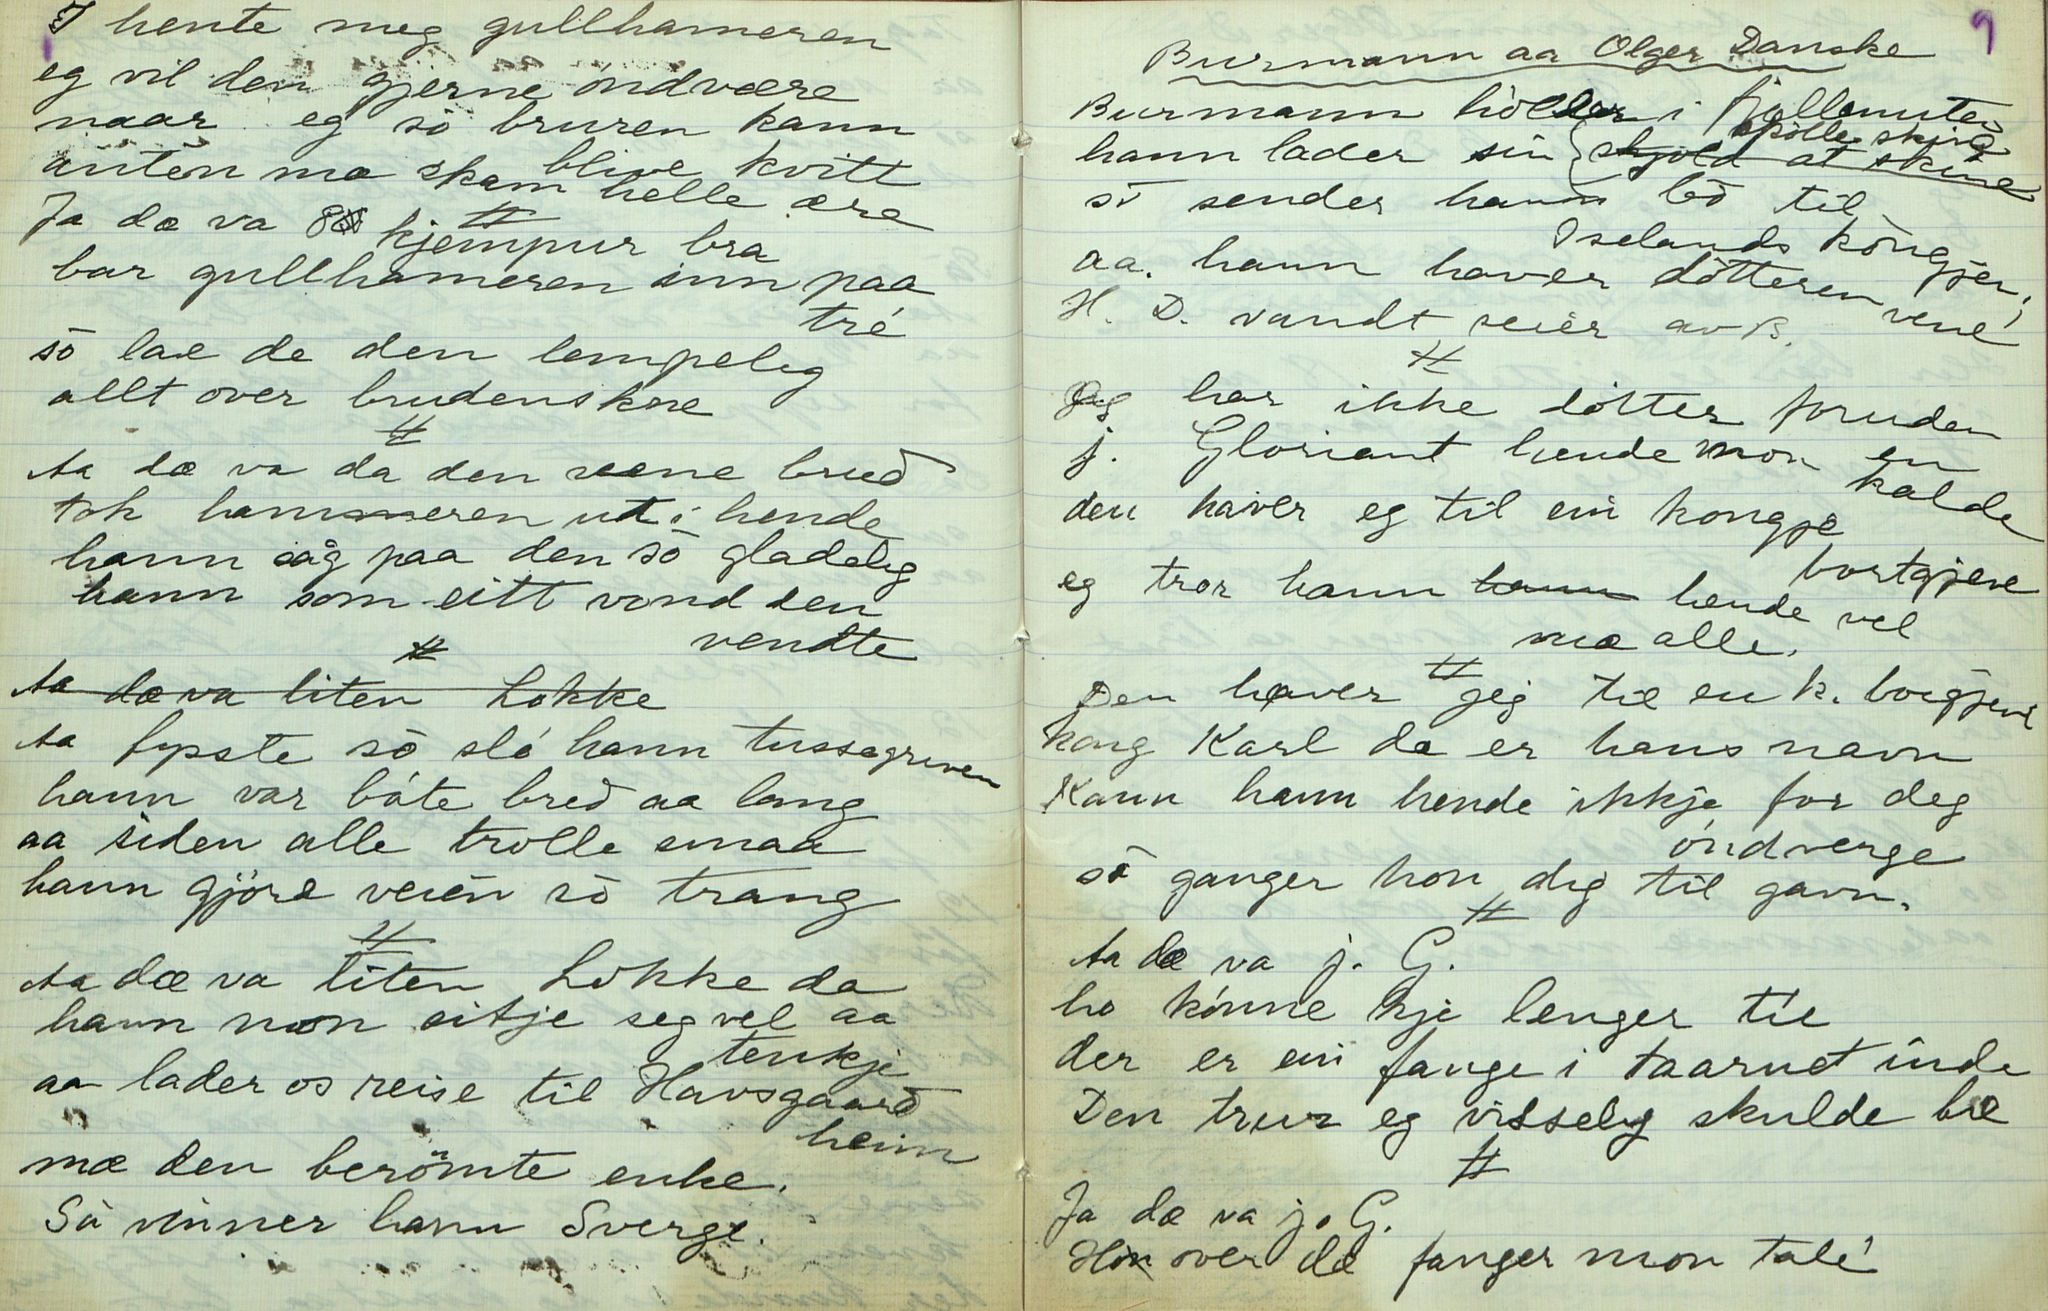 I hente meg gullhameren
eg vil den gjerne ondvære
naar eg so bruren kann
blive kvitt
anten mæ skam helle ære
#
Ja dæ va 8 kjempur bra
bar gullhameren inn paa
tré
so lae de den lempeleg
allt over brudenskne
#
Aa dæ va da den vene brud
tok hammeren ut i hende
hann såg paa den so gladeleg
hann som eitt vond den
vendte
#
Aa dæ va liten Lokke
Aa fyrste so sló hann tussagreven
hann var báte bred aa lang
aa siden alle trolle smaa
hann gjöre veien so trang
#
Aa dæ va liten Lokke da
hann mon sitje seg vel aa
tenkje
aa lader os reise til Havsgaard
heim
mæ den berömte enke.
Så vinner hann Sverge.
9
Burmann aa Olger Danske
Burmann holder i fjøllenuten
spölle skjine
hann lader sin skjold at skine
so sender hann bod til
Iselands kongjen,
aa. hann haver dotteren vene
H. D. vandt seier av B.
#
Jeg har ikke dótter foruden
j. Gloriant hende mon en
kalde
den haver eg til ein kongje
bortgjeve
eg tror hann hann hende vel
mæ alle.
#
Den haver jeg til en k. borgjeve
kong Karl da er hans navn
Kann hann hende ikkje for deg
óndverge
so ganger hon dig til gavn.
#
Aa dæ va j. G.
ho kónne kje lenger tie
der er ein fange i taarnet inde
Den trur eg visseleg skulde bie
#
Ja dæ va j. G.
Hon over de fanger mon tale